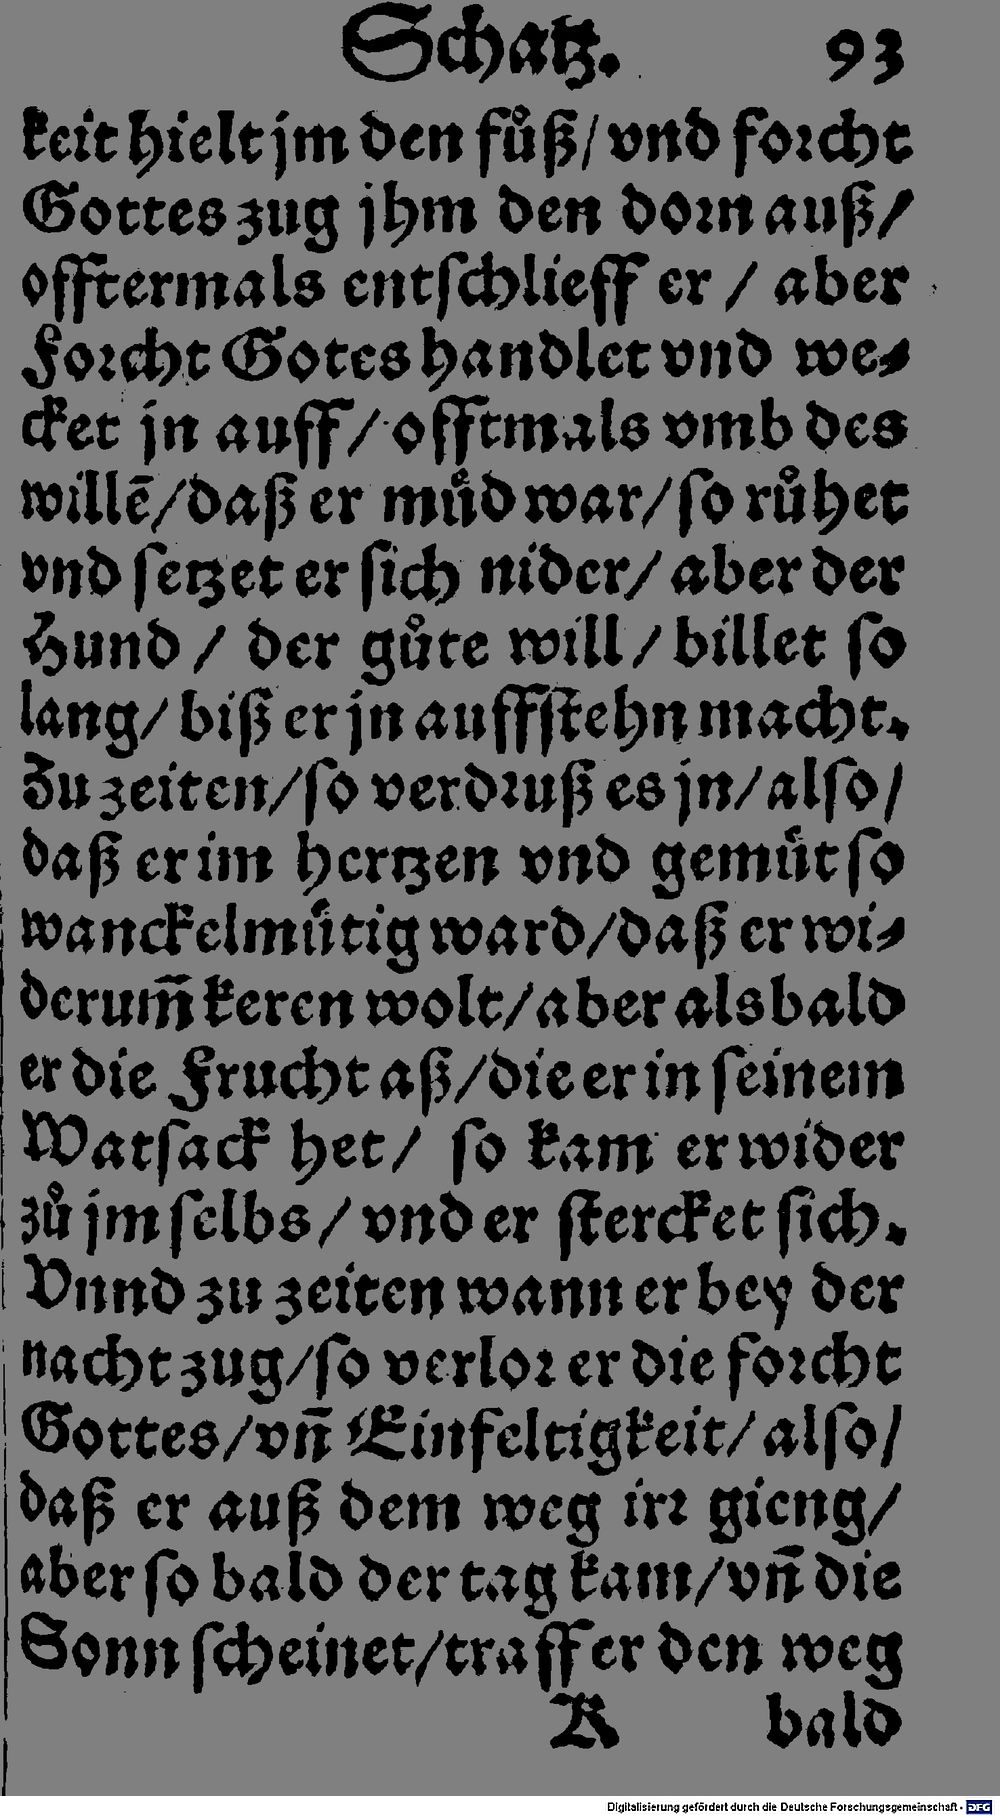 Schatz. 93
keit hielt jm den fuͦß/ vnd forcht
Gottes zug jhm den dorn auß/
offtermals entſchlieff er / aber
Forcht Gotes handlet vnd we⸗
cket jn auff/ offtmals vmb des
willē/ daß er muͤd war/ ſo ruͦhet
vnd ſetzet er ſich nider/ aber der
Hund / der guͦte will/ billet ſo
lang/ biß er jn auffſtehn macht.
Zu zeiten/ ſo verdruß es jn/ alſo/
daß er im hertzen vnd gemuͤt ſo
wanckelmuͤtig ward/ daß er wi⸗
derum̃ keren wolt/ aber als bald
er die Frucht aß/ die er in ſeinem
Watſack het/ ſo kam er wider
zuͦ jm ſelbs/ vnd er ſtercket ſich.
Vnnd zu zeiten wann er bey der
nacht zug/ ſo verlor er die forcht
Gottes/ vñ Einfeltigkeit/ alſo/
daß er auß dem weg irr gieng/
aber ſo bald der tag kam/ vñ die
Sonn ſcheinet/ traff er den weg
R bald
Digitalisierung gefördert durch die Deutsche Forschungsgemeinschaft - DFG